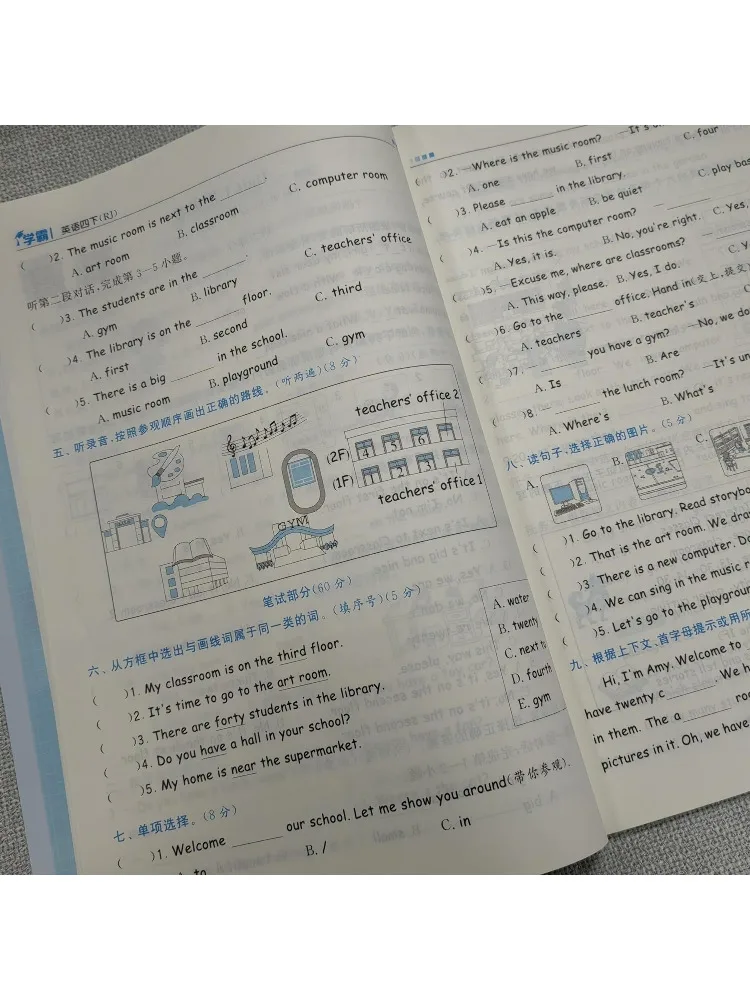 学霸 英语四下(RJ)
( )2. The music room is next to the ______.
A. art room B. classroom C. computer room
听第二段对话,完成第3—5小题。
( )3. The students are in the ______.
A. gym B. library C. teachers' office
( )4. The library is on the ______ floor.
A. first B. second C. third
( )5. There is a big ______ in the school.
A. music room B. playground C. gym
五、听录音,按照参观顺序画出正确的路线。(听两遍)(8分)
teachers' office 2
(2F) 4 5 6
(1F) 1 2 3
teachers' office 1
GYM
笔试部分(60分)
六、从方框中选出与画线词属于同一类的词。(填序号)(5分)
( )1. My classroom is on the third floor.
( )2. It's time to go to the art room.
( )3. There are forty students in the library.
( )4. Do you have a hall in your school?
( )5. My home is near the supermarket.
A. water
B. twenty
C. next to
D. fourth
E. gym
七、单项选择。(8分)
( )1. Welcome ______ our school. Let me show you around(带你参观).
B. / C. in
( )2. —Where is the music room? —It's
A. one B. first C. four
( )3. Please ______ in the library.
A. eat an apple B. be quiet C. play
( )4. —Is this the computer room? —______
A. Yes, it is. B. No, you're right. C. Yes,
( )5. —Excuse me, where are classrooms? —
A. This way, please. B. Yes, I do. C.
( )6. Go to the ______ office. Hand in(交上,提交)
A. teachers B. teacher's
( )7. —______ you have a gym? —No, we
A. Is B. Are
( )8. —______ the lunch room? —It's
A. Where's B. What's
八、读句子,选择正确的图片。(5分)
A. B. C.
( )1. Go to the library. Read
( )2. That is the art room. We
( )3. There is a new computer.
( )4. We can sing in the music
( )5. Let's go to the
九、根据上下文,首字母提示或用所
Hi, I'm Amy. Welcome to
have twenty c______. We
in them. The a______
pictures in it. Oh, we have